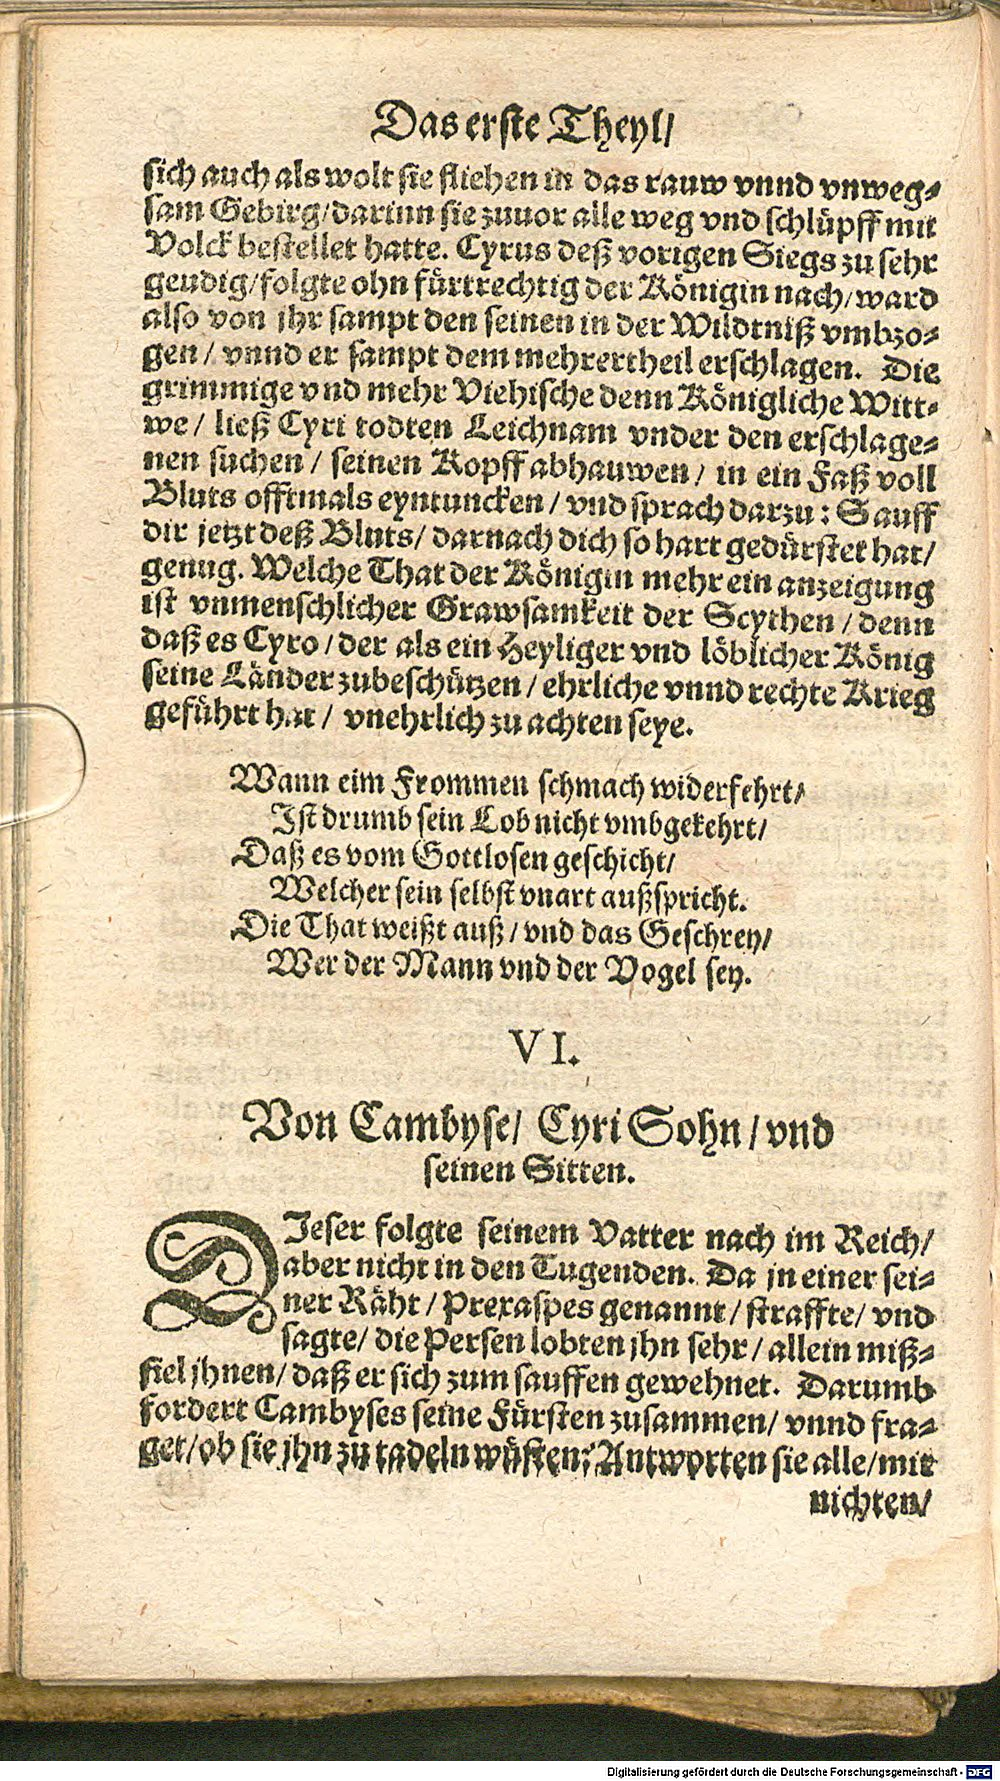 Das erste Theyl/
sich auch als wolt sie fliehen in das rauw vnnd vnweg⸗
sam Gebirg/darinn sie zuuor alle weg vnd schlüpff mit
Volck bestellet hatte. Cyrus deß vorigen Siegs zu sehr
geudig/folgte ohn fürtrechtig der Königin nach/ward
also von jhr sampt den seinen in der Wildtniß vmbzo⸗
gen/ vnnd er sampt dem mehrertheil erschlagen. Die
grimmige vnd mehr Viehische denn Königliche Witt⸗
we/ ließ Cyri todten Leichnam vnder den erschlage⸗
nen suchen/ seinen Kopff abhauwen/ in ein Faß voll
Bluts offtmals eyntuncken/ vnd sprach darzu: Sauff
dir jetzt deß Bluts/ darnach dich so hart gedürstet hat/
genug. Welche That der Königin mehr ein anzeigung
ist vnmenschlicher Grawsamkeit der Scythen/denn
daß es Cyro/der als ein Heyliger vnd löblicher König
seine Länder zubeschützen/ehrliche vnnd rechte Krieg
geführt hat/ vnehrlich zu achten seye.
Wann eim Frommen schmach widerfehrt/
Ist drumb sein Lob nicht vmbgekehrt/
Daß es vom Gottlosen geschicht/
Welcher sein selbst vnart außspricht.
Die That weißt auß/vnd das Geschrey/
Wer der Mann vnd der Vogel sey.
VI.
Von Cambyse/ Cyri Sohn/vnd
seinen Sitten.
DIeser folgte seinem Vatter nach im Reich/
aber nicht in den Tugenden. Da jn einer sei⸗
ner Räht/Prexaspes genannt/straffte/vnd
sagte/ die Persen lobten jhn sehr/allein miß⸗
fiel jhnen/daß er sich zum sauffen gewehnet. Darumb
fordert Cambyses seine Fürsten zusammen/ vnnd fra⸗
get/ob sie jhn zu tadeln wüßten: Antworten sie alle/mit
nichten/
Digitalisierung gefördert durch die Deutsche Forschungsgemeinschaft - DFG